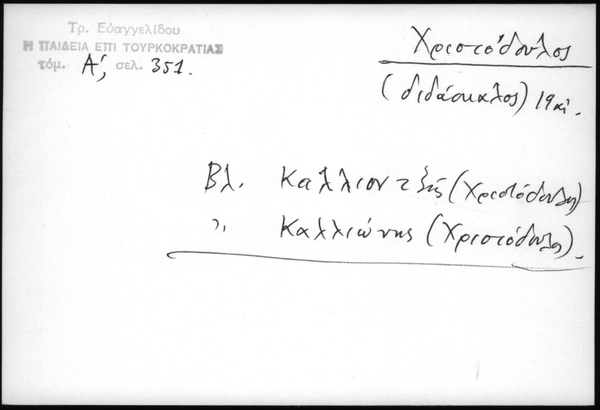 Τρ. Εὐαγγελίδου
Η ΠΑΙΔΕΙΑ ΕΠΙ ΤΟΥΡΚΟΚΡΑΤΙΑΣ
τόμ. Α', σελ. 351.
Χριστόδουλος
(διδάσκαλος) 19 αἰ.
Βλ. Καλλιοντζῆς (Χριστόδουλος)
" Καλλιώνης (Χριστόδουλος).